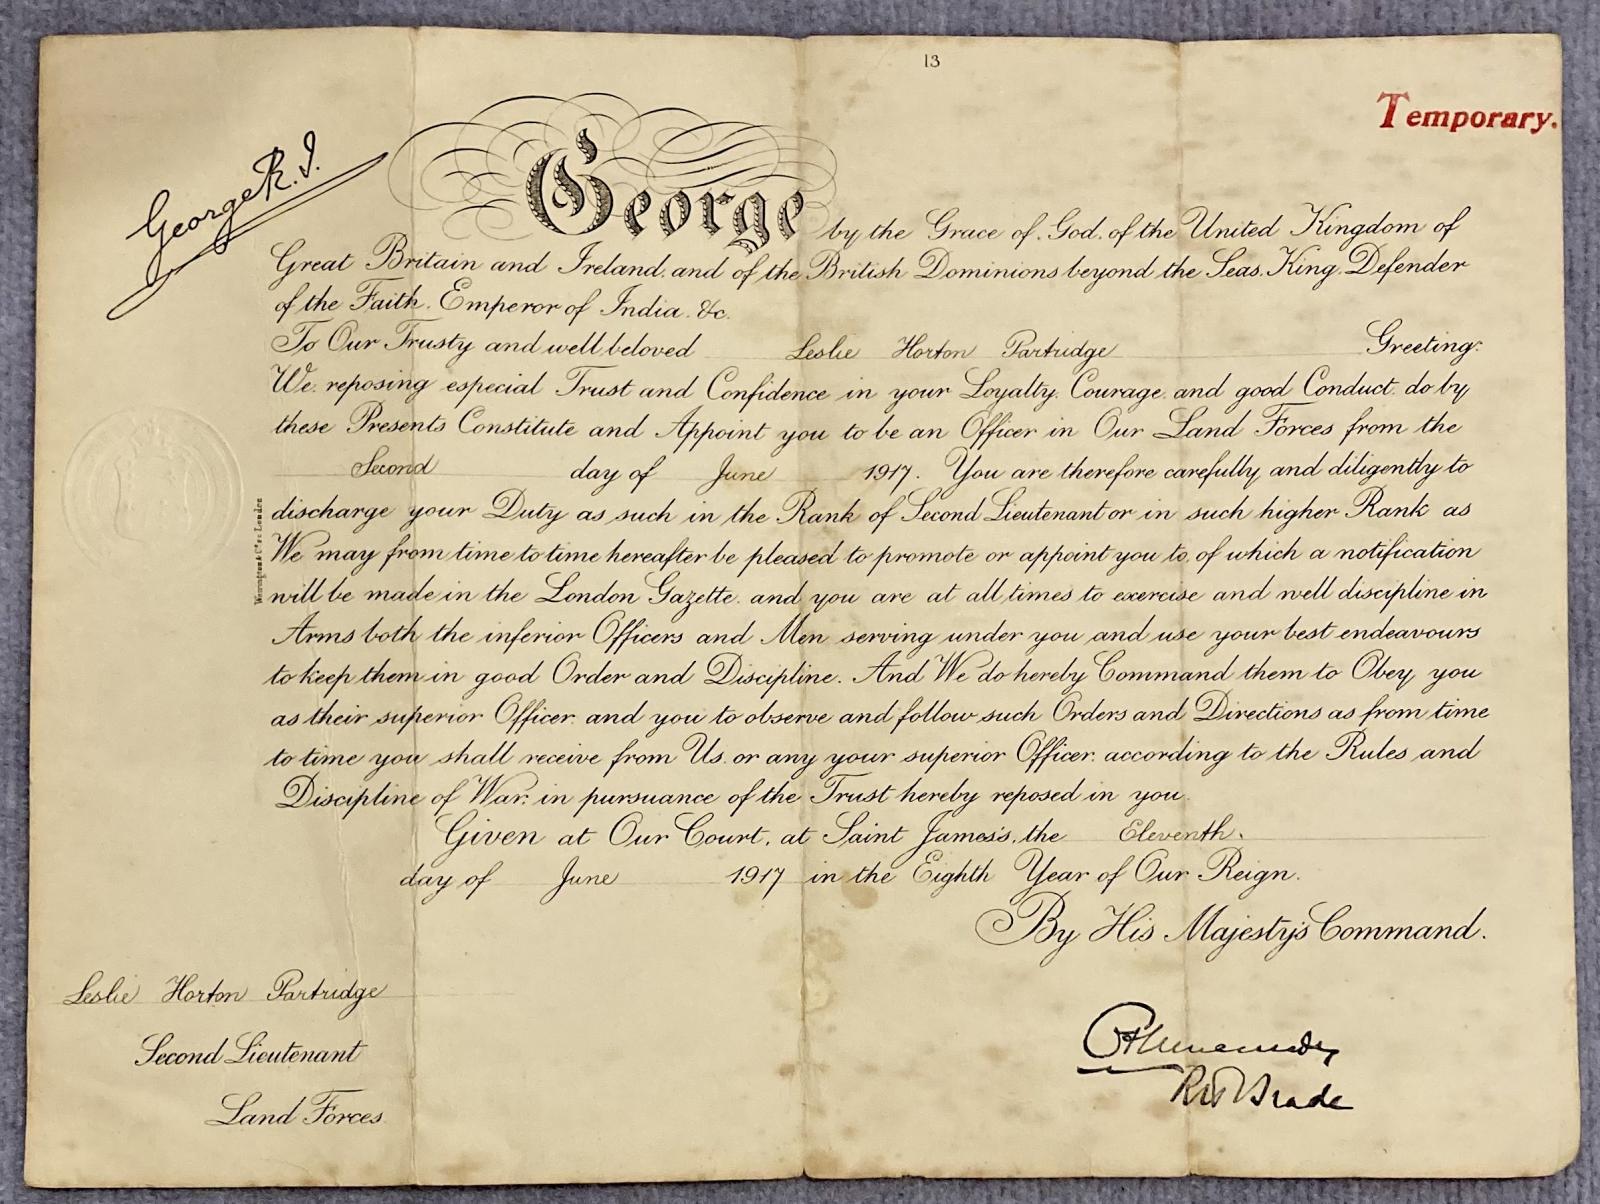 13
Temporary.
George R.I.
George by the Grace of God, of the United Kingdom of
Great Britain and Ireland, and of the British Dominions beyond the Seas, King, Defender
of the Faith, Emperor of India, &c.
To Our Trusty and well beloved Leslie Horton Partridge Greeting:
We, reposing especial Trust and Confidence in your Loyalty, Courage, and good Conduct, do by
these Presents Constitute and Appoint you to be an Officer in Our Land Forces from the
Second day of June 1917. You are therefore carefully and diligently to
discharge your Duty as such in the Rank of Second Lieutenant or in such higher Rank as
We may from time to time hereafter be pleased to promote or appoint you to, of which a notification
will be made in the London Gazette, and you are at all times to exercise and well discipline in
Arms both the inferior Officers and Men serving under you and use your best endeavours
to keep them in good Order and Discipline. And We do hereby Command them to Obey you
as their superior Officer, and you to observe and follow such Orders and Directions as from time
to time you shall receive from Us, or any your superior Officer, according to the Rules and
Discipline of War, in pursuance of the Trust hereby reposed in you.
Given at Our Court, at Saint James's, the Eleventh.
day of June 1917 in the Eighth Year of Our Reign.
By His Majesty's Command.
Leslie Horton Partridge
Second Lieutenant
Land Forces
Brade